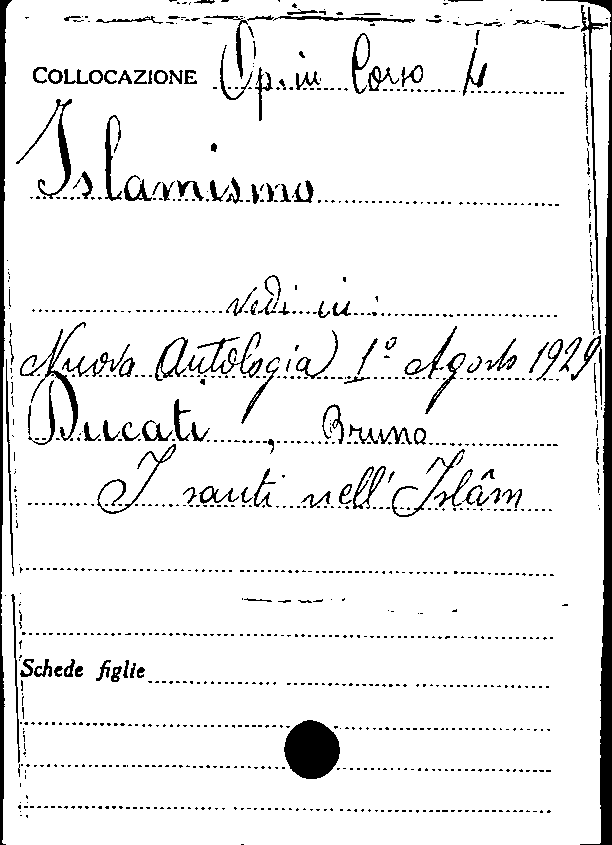 COLLOCAZIONE Op. in Corso 4
Islamismo
vedi in:
Nuova Antologia 1º Agosto 1929
Ducati, Bruno
I santi nell'Islâm
Schede figlie